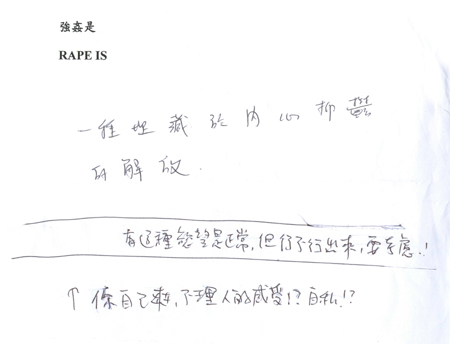 強姦是
RAPE IS
一種埋藏於內心抑鬱
的解放.
有這種慾望是正常,但行不行出來,要考慮.!
↑係自己爽,不理人的感受!?自私!?